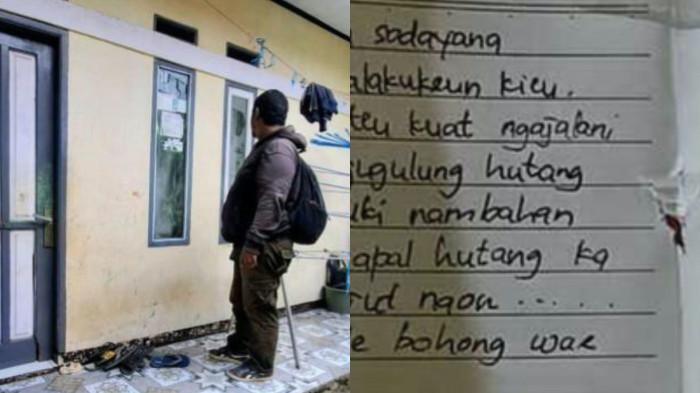 sadayang
lakukeun kieu.
teu kuat ngajalani
gulung hutang
ki nambahan
apal hutang ka
ngon .....
e bohong wae